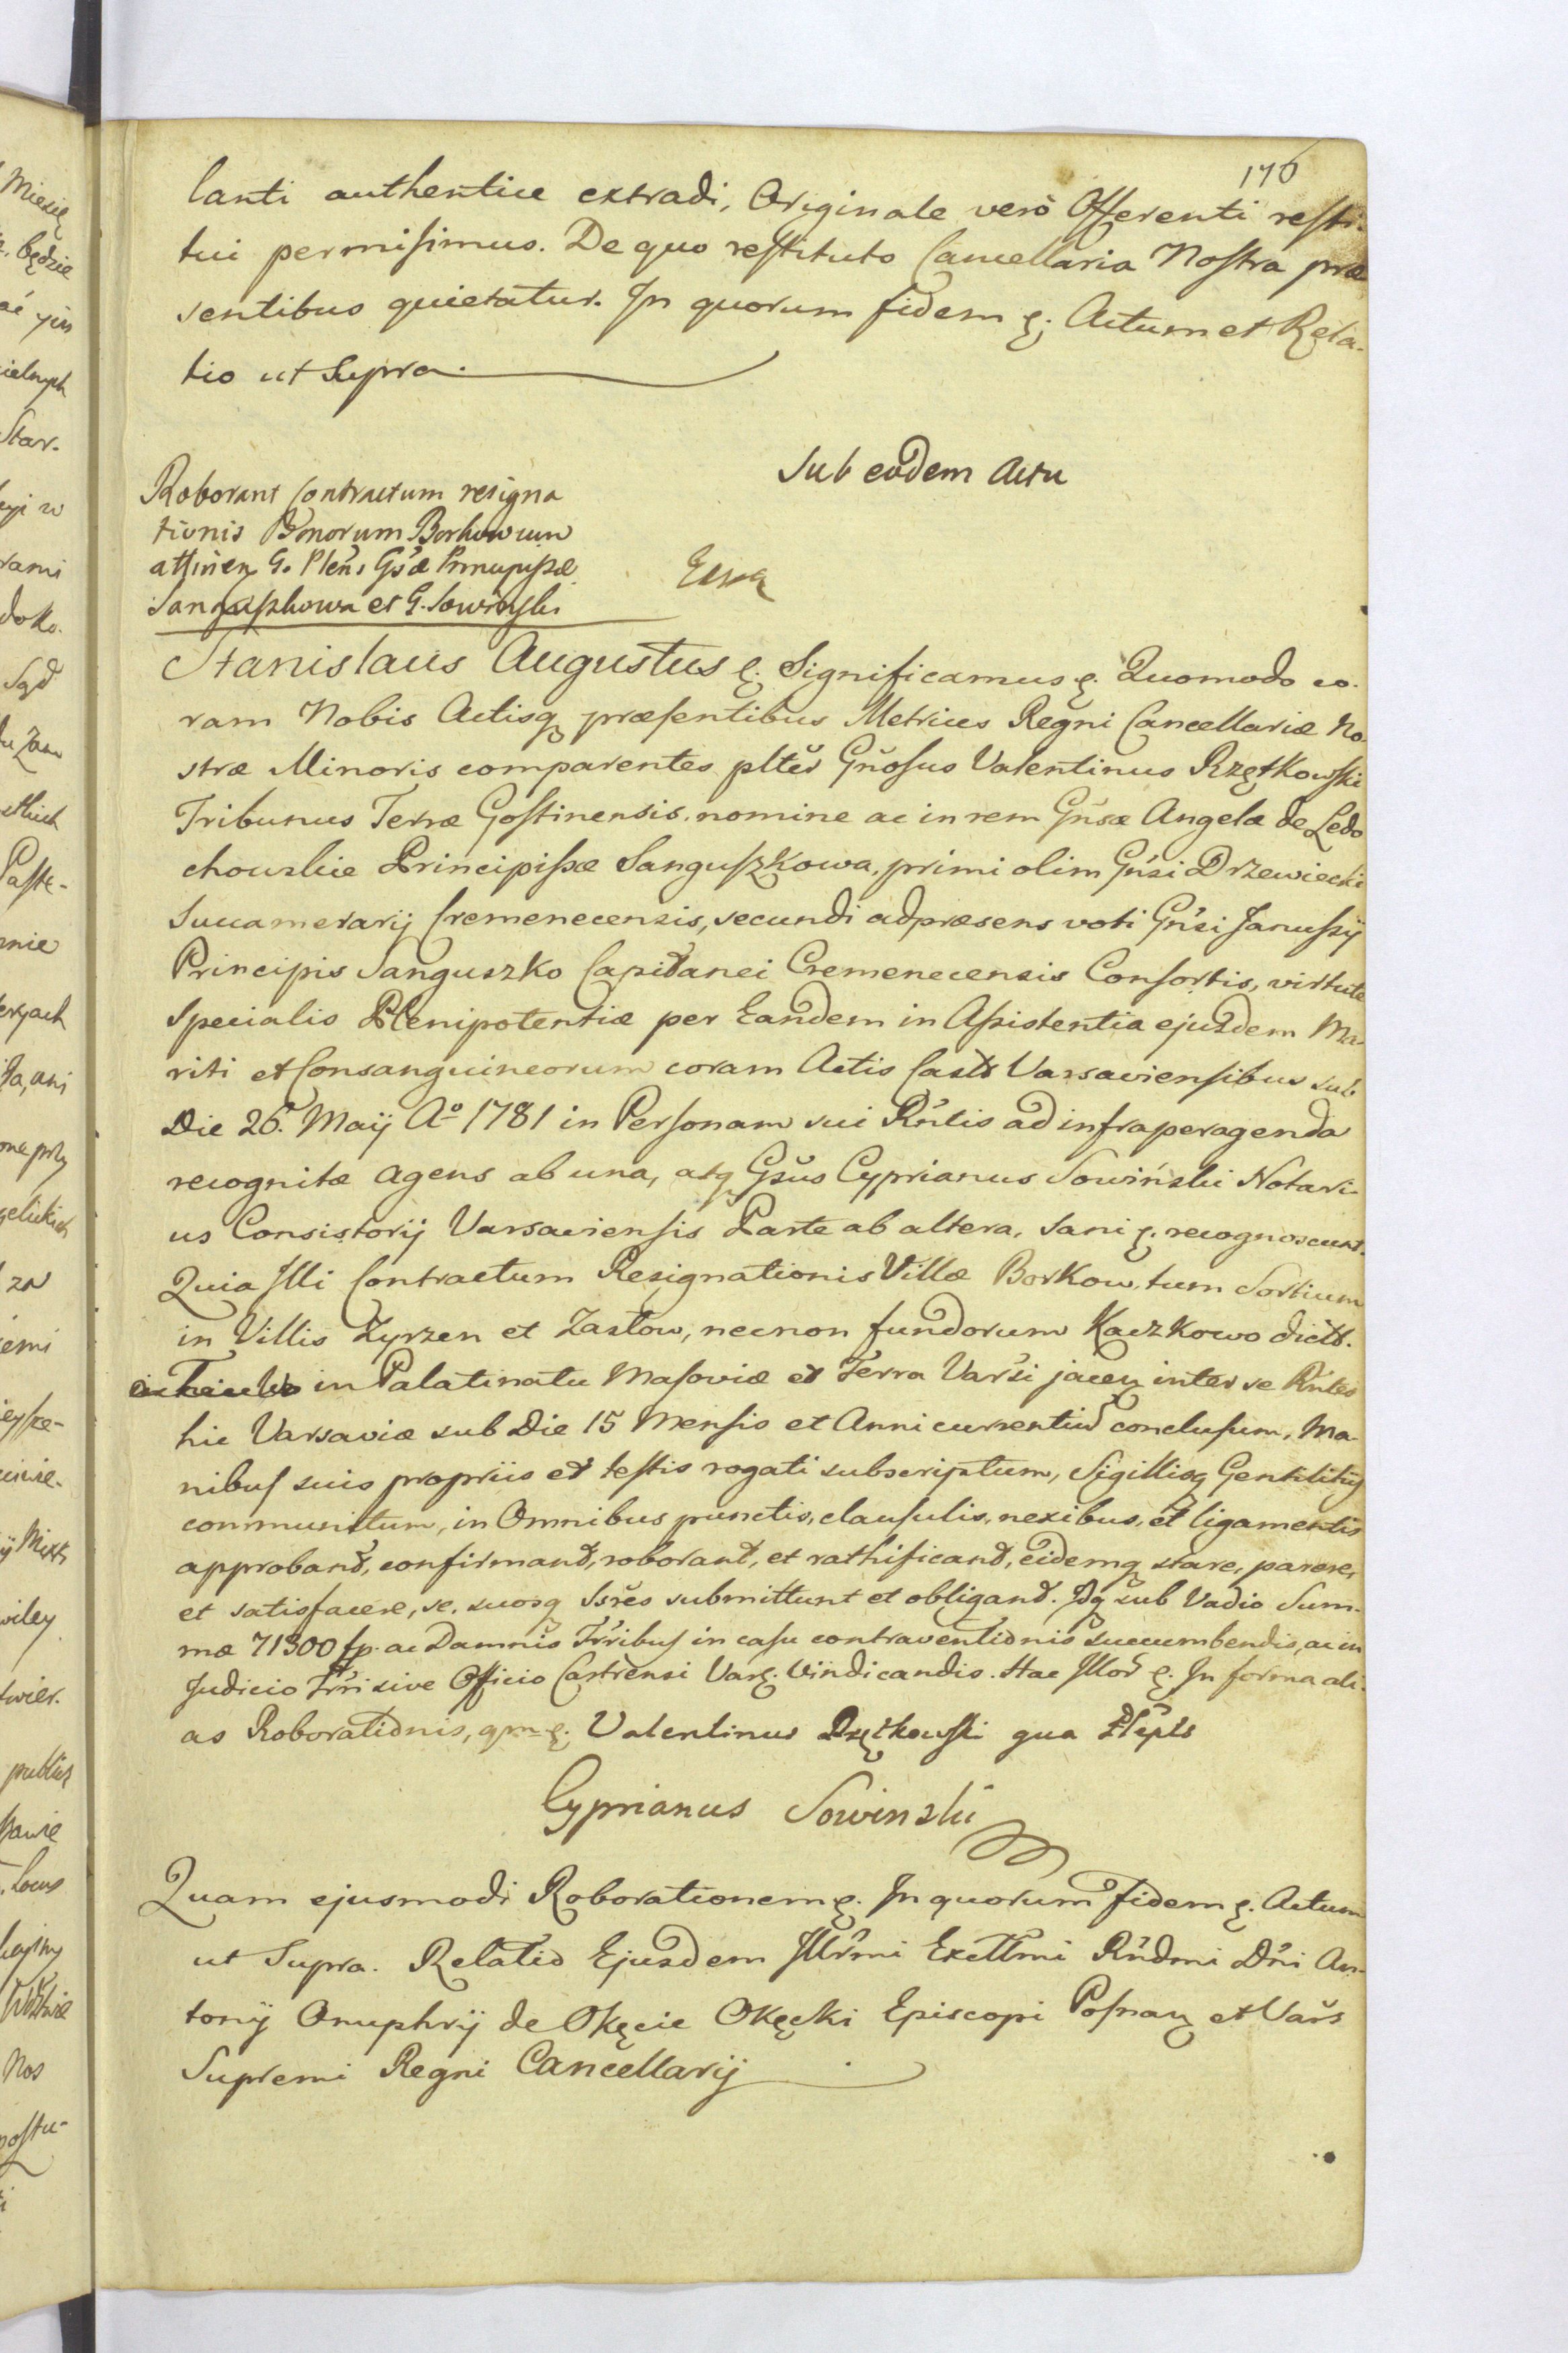 176
lanti authentice extradi, Originale verò Offerenti resti-
tui permisimus. De quo restituto Cancellaria Nostra præ
sentibus quietatur. In quorum fidem &. Actum et Rela-
tio ut Supra.
Sub eodem Actu
Roborant Contractum resigna
tionis Bonorum Borkow cum
attinen G. Pleñi Gsæ Principissæ
Sanguszkowa et G. Sowinski
Stanislaus Augustus &. Significamus &. Quomodo co-
ram Nobis Actisq præsentibus Metrices Regni Cancellariæ No
stræ Minoris comparentes plter Gñosus Valentinus Rzętkowski
Tribunus Terræ Gostinensis, nomine ac in rem Gñsæ Angelæ de Ledo
chowskie Principissæ Sanguszkowa, primi olim Gñsi Drzewiecki
Succamerarij Cremenecensis, secundi adpræsens voti Gñsi Janussij
Principis Sanguszko Capitanei Cremenecensis Consortis, virtute
Specialis Plenipotentiæ per Eandem in Assistentia ejusdem Ma-
riti et Consanguineorum coram Actis Castr Varsaviensibus sub
Die 26. Maij Aº 1781 in Personam sui Rñtis ad infraperagenda
recognitæ agens ab una, atq Gsus Cyprianus Sowiński Notari-
us Consistorij Varsaviensis Parte ab altera, Sani &. recognoscunt.
Quia Illi Contractum Resignationis Villæ Borkow, tum Sortium
in Villis Zyrzen et Zastow, necnon fundorum Kaczkowo dictt.
in Palatinatu Masoviæ et Terra Varsi jacen inter se Rñtes
hic Varsaviæ sub Die 15 Mensis et Anni currentiu conclusum, Ma-
nibus suis propriis et testis rogati subscriptum, Sigillisq Gentilitijs
communitum, in Omnibus punctis, clausulis, nexibus, et ligamentis
approband, confirmand, roborant, et rathificand, eidemq stare, parere,
et satisfacere, se, suosq Ssřes submittunt et obligand. Idq sub Vadio Sum-
mæ 71300 fp. ac Damnis Trribus in casu contraventionis succumbendis, ac in
Judicio Trři sive Officio Castrensi Vars. Vindicandis. Hac Illor &. In forma ali-
as Roborationis, qm &. Valentinus Rzętkowski qua Plepts
Cyprianus Sowinski
Quam ejusmodi Roborationem &. In quorum fidem &. Actum
ut Supra. Relatio Ejusdem Illřmi Excllmi Rñdmi Dñi An-
tonij Onuphrij de Okęcie Okęcki Episcopi Posnan et Vars
Supremi Regni Cancellarij